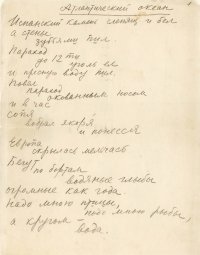 Атлантический океан
Испанский камень слепящ и бел
а стены
зубьями пил.
Пароход
до 12ти
уголь ел
и пресную воду пил.
Повел
пароход
окованным носом
и в час
сопя
вобрал якоря
и понесся
Европа
скрылась мельчась
Бегут
по бортам
водяные глыбы
огромные как года
Надо мною птицы,
подо мною рыбы,
а кругом –
вода.